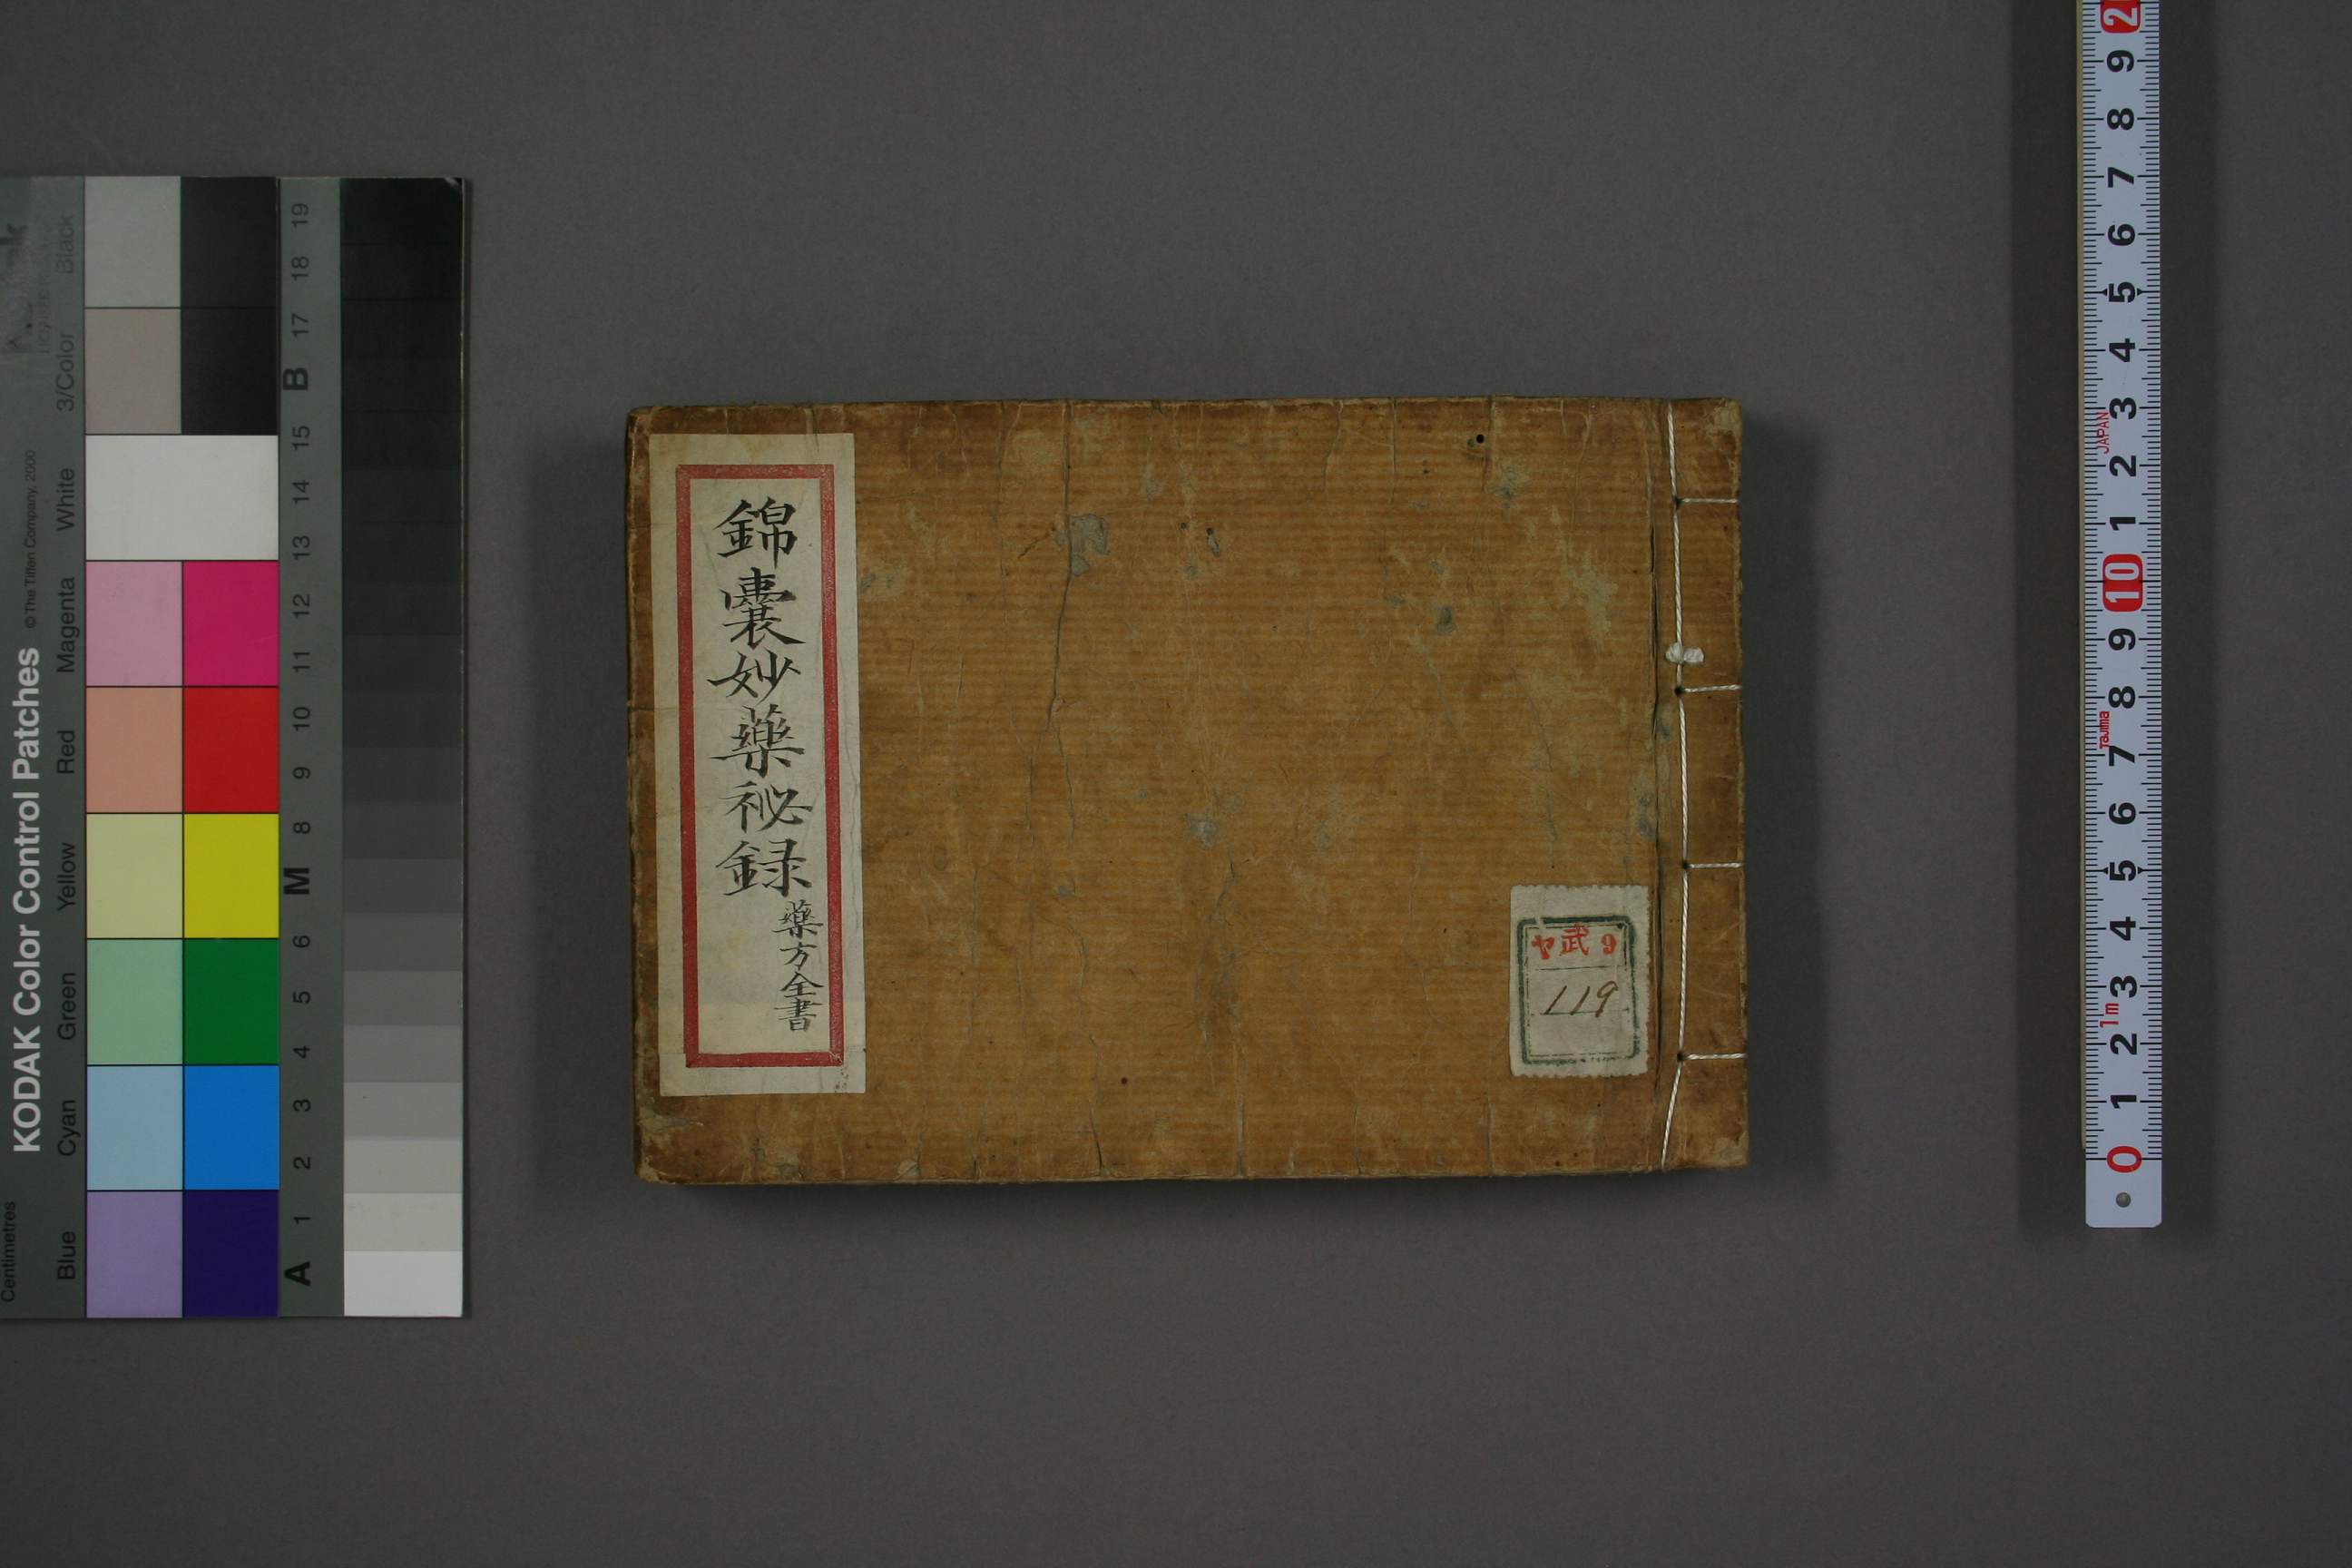 錦嚢妙藥祕録
藥方全書
ヤ武9
119
KODAK Color Control Patches
© The Tiffen Company, 2000
Centimetres
Blue Cyan Green Yellow Red Magenta White 3/Color Black
A 1 2 3 4 5 6 M 8 9 10 11 12 13 14 15 B 17 18 19
0 1 2 3 4 5 6 7 8 9 10 1 2 3 4 5 6 7 8 9 2
1m
Tajima
JAPAN